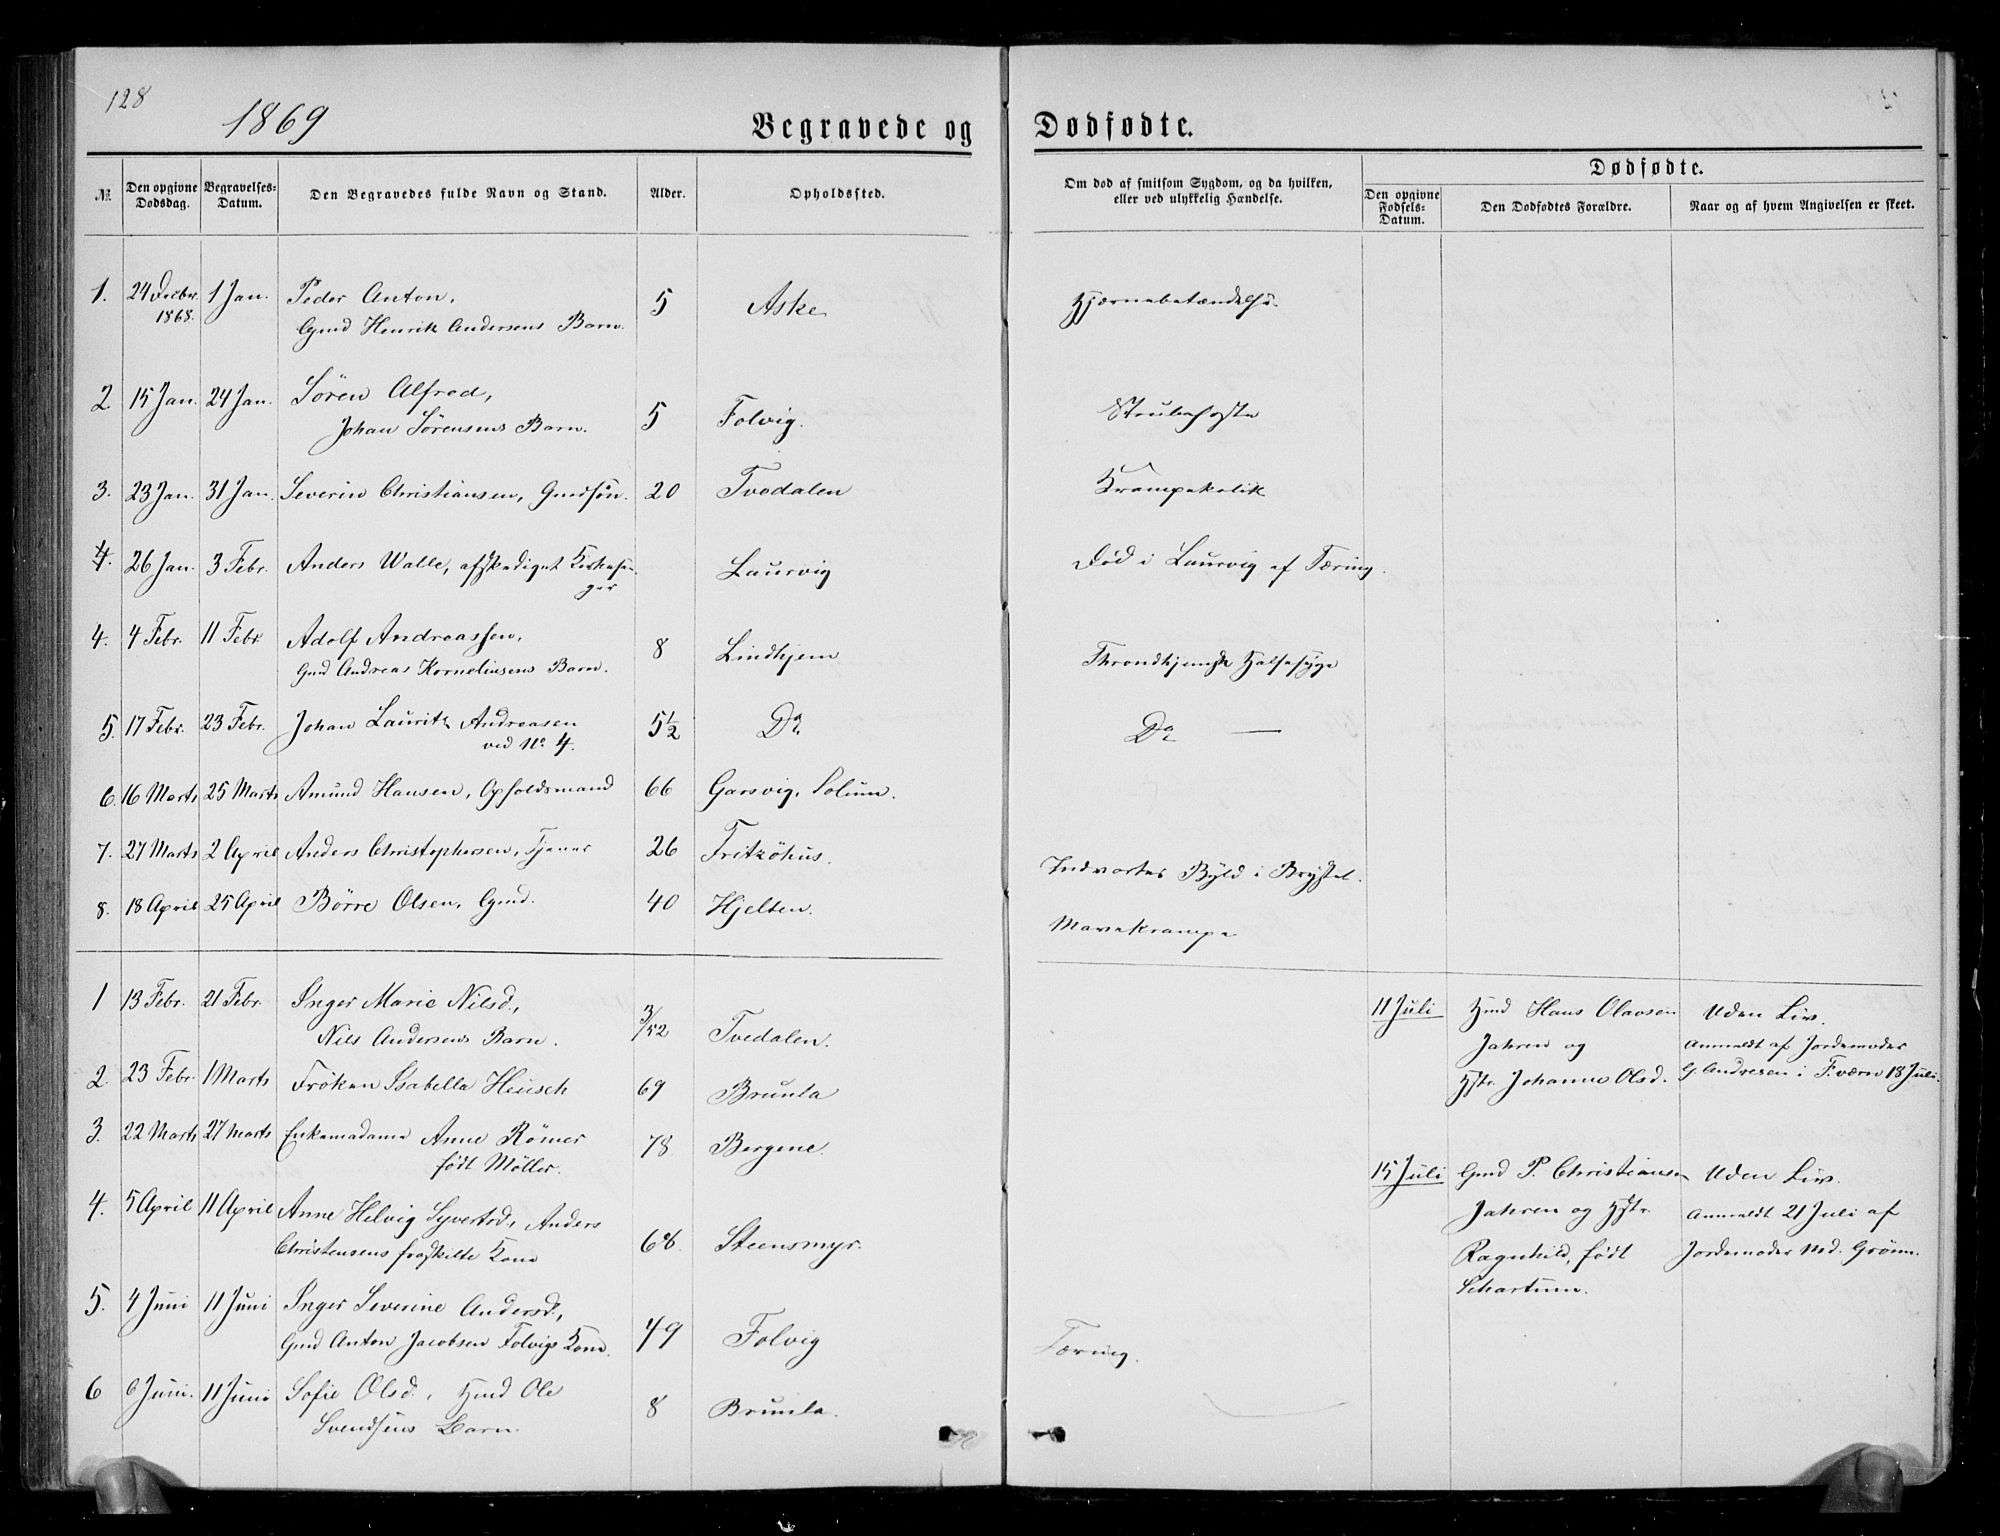 128
1869
Begravede og Dødfødte.
№
Den opgivne Dødsdag.
Begravelses-Datum.
Den Begravedes fulde Navn og Stand.
Alder.
Opholdssted.
Om død af smitsom Sygdom, og da hvilken, eller ved ulykkelig Hændelse.
Dødfødte.
Den opgivne Fødsels-Datum.
Den Dødfødtes Forældre.
Naar og af hvem Angivelsen er skeet.
1. 24 Decbr. 1 Jan. Peder Anton, 5 Aske Hjernebetændelse.
1868. Gmd Henrik Andersens Barn.
2 15 Jan. 24 Jan. Søren Alfred,
Johan Sørensens Barn. 5 Folvig. Strubehoste
3. 23 Jan. 31 Jan. Severin Christiansen, Gmdsøn. 20 Tvedalen Krampekolik
4. 26 Jan. 3 Febr. Anders Walle, afskediget Kirkesan-
ger Laurvig Død i Laurvig af Tæring.
4. 4 Febr. 11 Febr Adolf Andreassen,
Gmd Andreas Korneliusens Barn. 8 Lindhjem Throndhjemsk Halssyge
5. 17 Febr. 23 Febr. Johan Lauritz Andreasen 5½ Do Do —
ved No 4.
6. 16 Marts 25 Marts Amund Hansen, Opholdsmand 66 Garsvig, Solum.
7. 27 Marts 2 April Anders Christophersen, Tjener 26 Fritzöhus. Indvortes Byld i Brystet.
8. 18 April 25 April Börre Olsen, Gmd. 40 Hjelten. Mavekrampe
1 13 Febr. 21 Febr. Inger Marie Nilsd.,
Nils Andersens Barn. 3/52 Tvedalen.
2 23 Febr. 1 Marts Frøken Isabella Heusch 69 Brunla
3. 22 Marts 27 Marts Enkemadame Anne Römer
født Møller. 78 Bergene.
4. 5 April 11 April Anne Helvig Syvertsd., Anders
Christensens fraskilte Kone 68. Steensmyr.
5. 4 Juni 11 Juni Inger Severine Andersd.,
Gmd Anton Jacobsen Folvigs Kone. 49 Folvig Tæring.
6 6 Juni. 11 Juni Sofie Olsd., Hmd Ole
Svendsens Barn. 8 Brunla.
11 Juli Hmd Hans Olavsen Uden Liv.
Jahren og Anmeldt af Jordemoder
Hstr. Johanne Olsd. G. Andresen i F.værn 18 Juli.
15 Juli Gmd P. Christiansen Uden Liv.
Jahren og Hstr. Anmeldt 21 Juli af
Ragnhild, født Jordemoder Md. Grönn.
Schartum.